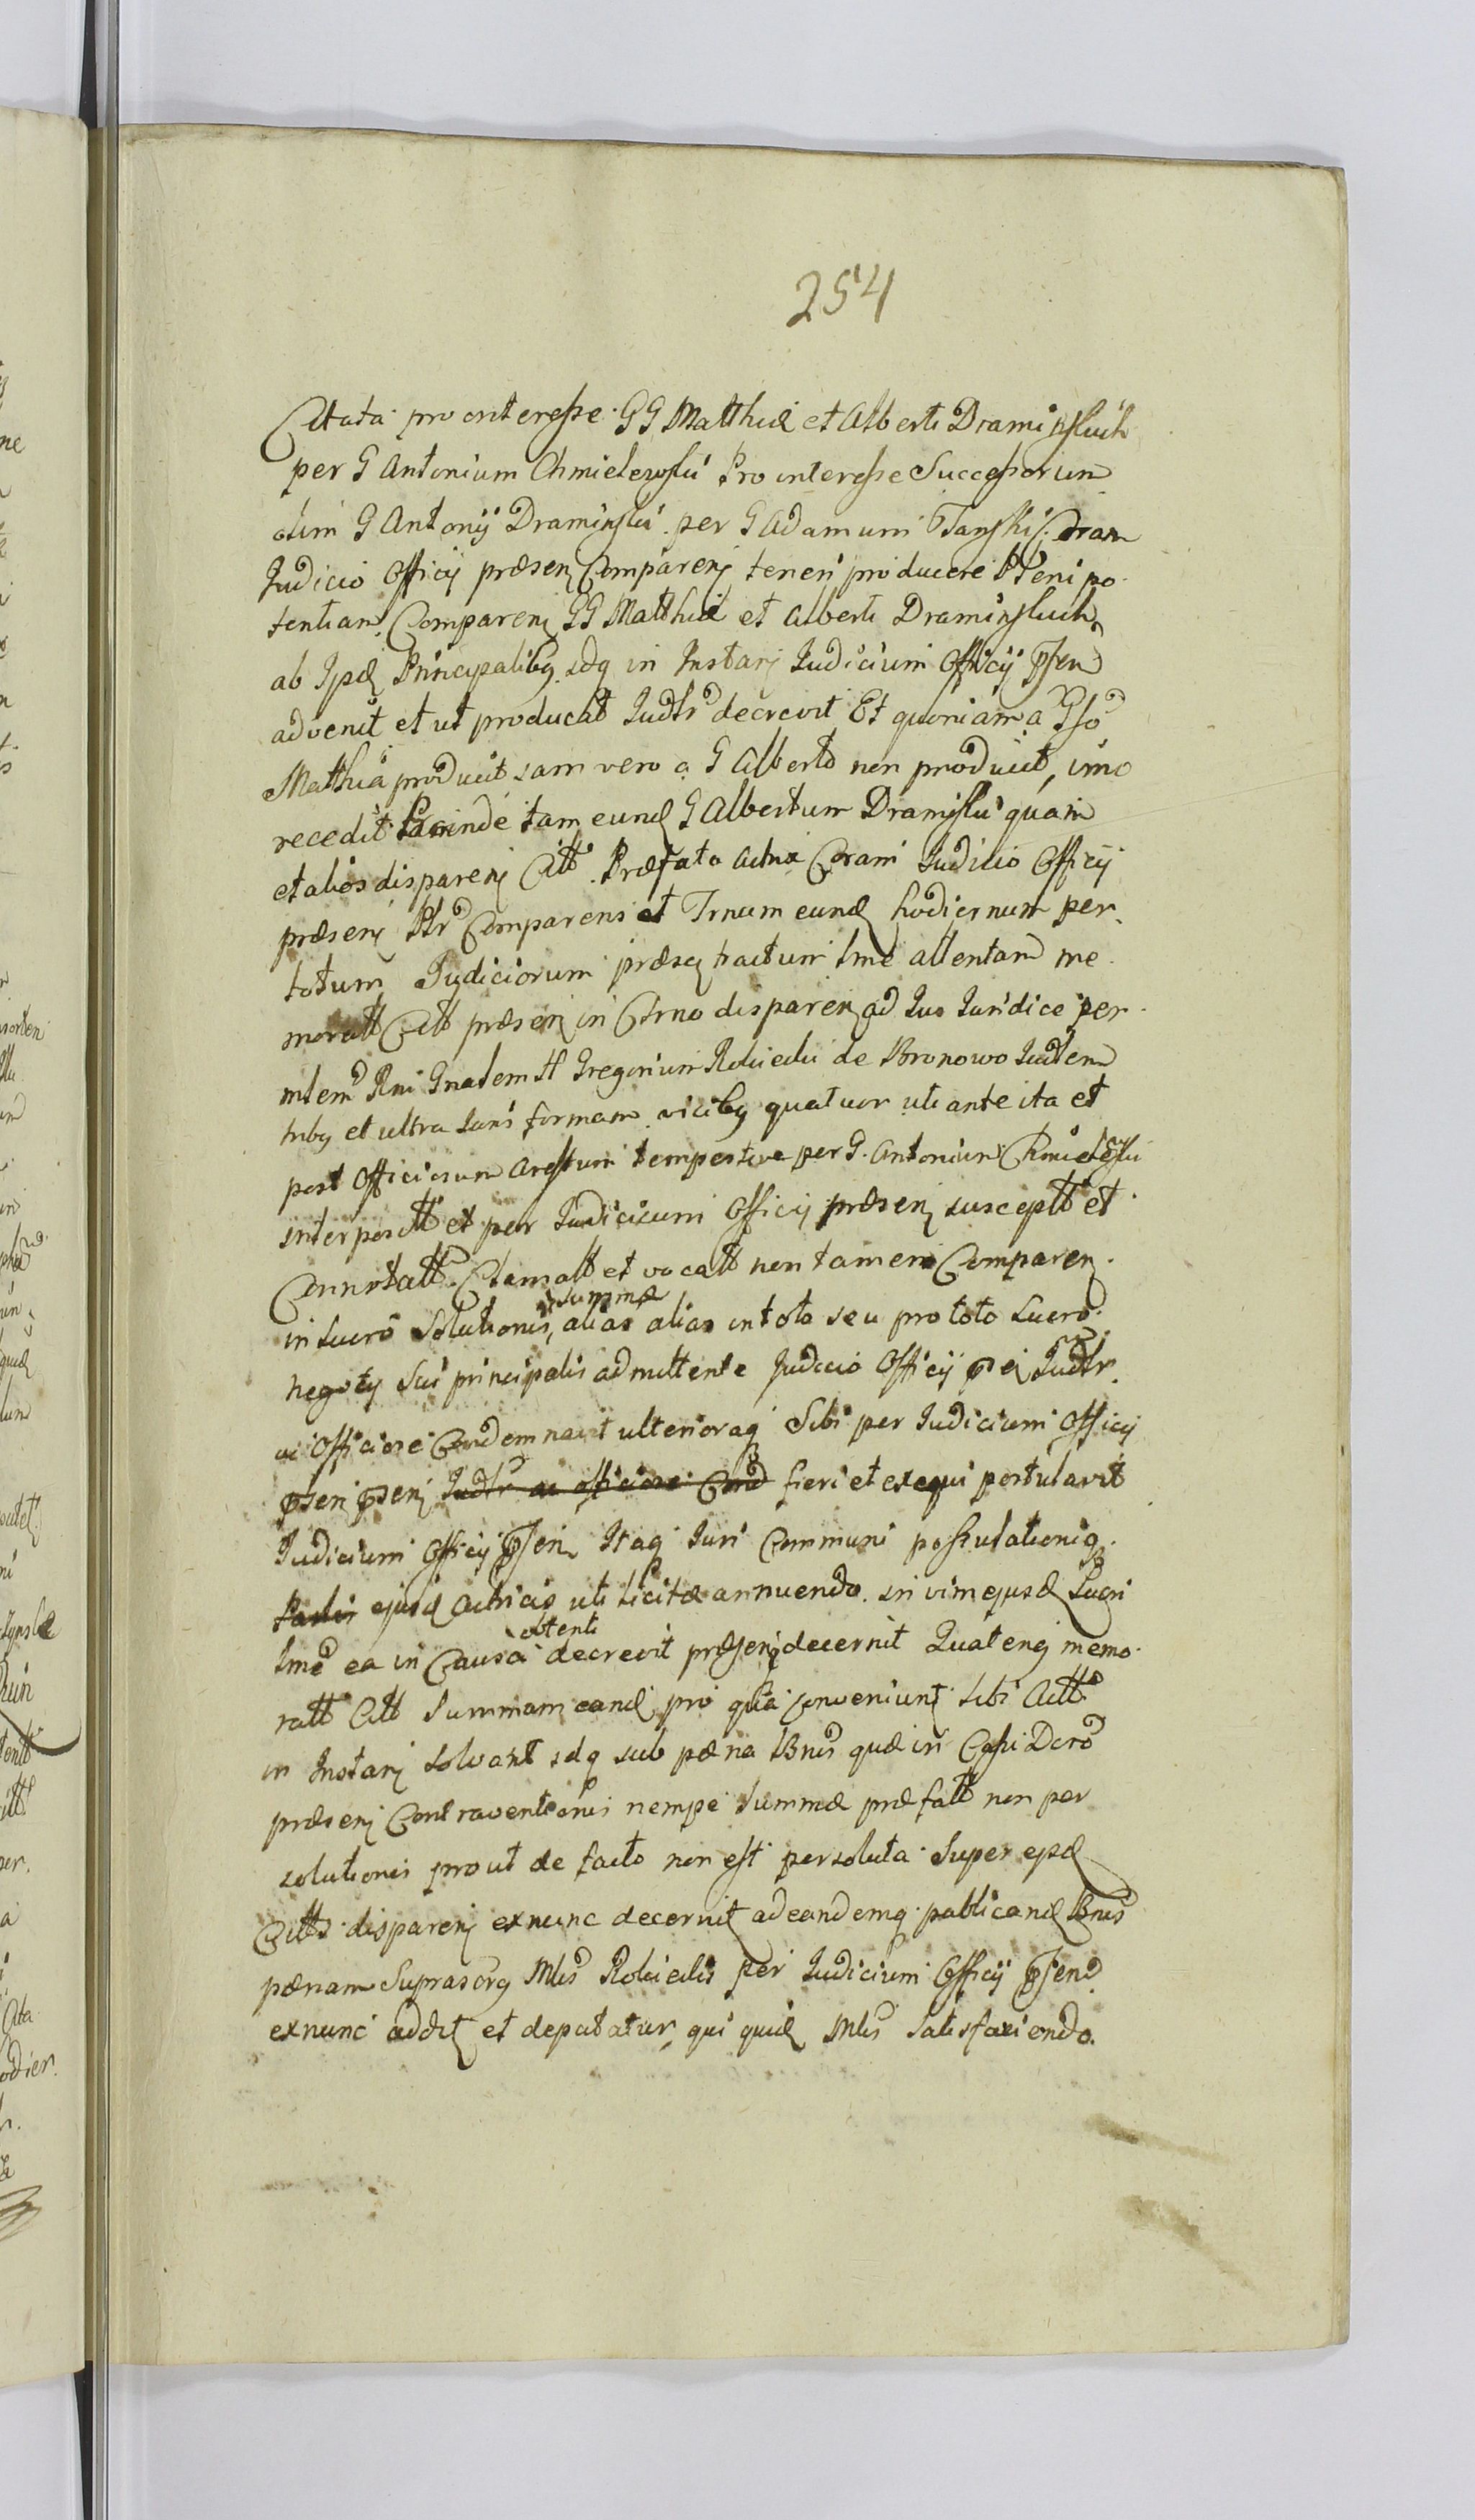 254
Citata pro interesse GG Matthiæ et Alberti Draminskich
per G Antonium Chmielewski Pro interesse Successorum
olim G Antonij Draminski per G Adamum Tanski Coram
Judicio Officij præsen Comparen teneri producere Plenipo
tentiam Comparen GG Matthiæ et Alberti Draminskich
ab Ipsæ Principalibq idq in Instan Judicium Officij
advenit et ut producat Judlr decrevit Et quoniam a Gso
Matthia producit iam vero a G Alberto non producit, imo
recedit Proinde tam eund G Albertum Draminski quam
et alios disparen Citt Præfata Actrix Coram Judicio Officij
præsen Plr Comparens et Trnum eund hodiernum per
totum Judiciorum præsen tractum lme attentam me
moratt Citt præsen in Ctrno disparen ad Jus Juridice per
mlem Rni Gnalem H Gregorium Rokicki de Bronowo Judlem
tribq et ultra Juris formam vicibq quatuor uti ante ita et
post Officiosum Arestum tempestive per G. Antonium Chmielewski
interposit et per Judicium Officij præsen suscept et
Connotatt Clamatt et vocatt non tamen Comparen
in lucro Solutionis, summæ alias alias in toto seu pro toto lucro
negotij sui principalis admittente Judicio Officij Judlr
ac Officiose Condemnavit ulterioraq Sibi per Judicium Officij
Judlr ac officiose Cond fieri et exequi postulavit
Judicium Officij Itaq Juri Communi postulationiq
Partis ejusd Actricis uti licitæ annuendo in vim ejusd Lucri
lme ea in Causa obtenti decrevit præsen decernit Quateng memo
ratt Citt Summam eand pro qua conveniunt sibi Actt
in Instan solvant idq sub pæna Bnis quæ in Casu Dcro
præsen Contraventionis nempe Summæ præfatt non per
solutionis prout de facto non est persoluta Super ipsæ
Citts disparen exnunc decernit ad eandemq publicand Bnis
pænam Suprascrg Mlis Rokicki per Judicium Officij
exnunc addit et deputatur, qui quid Mlis satisfaciendo.